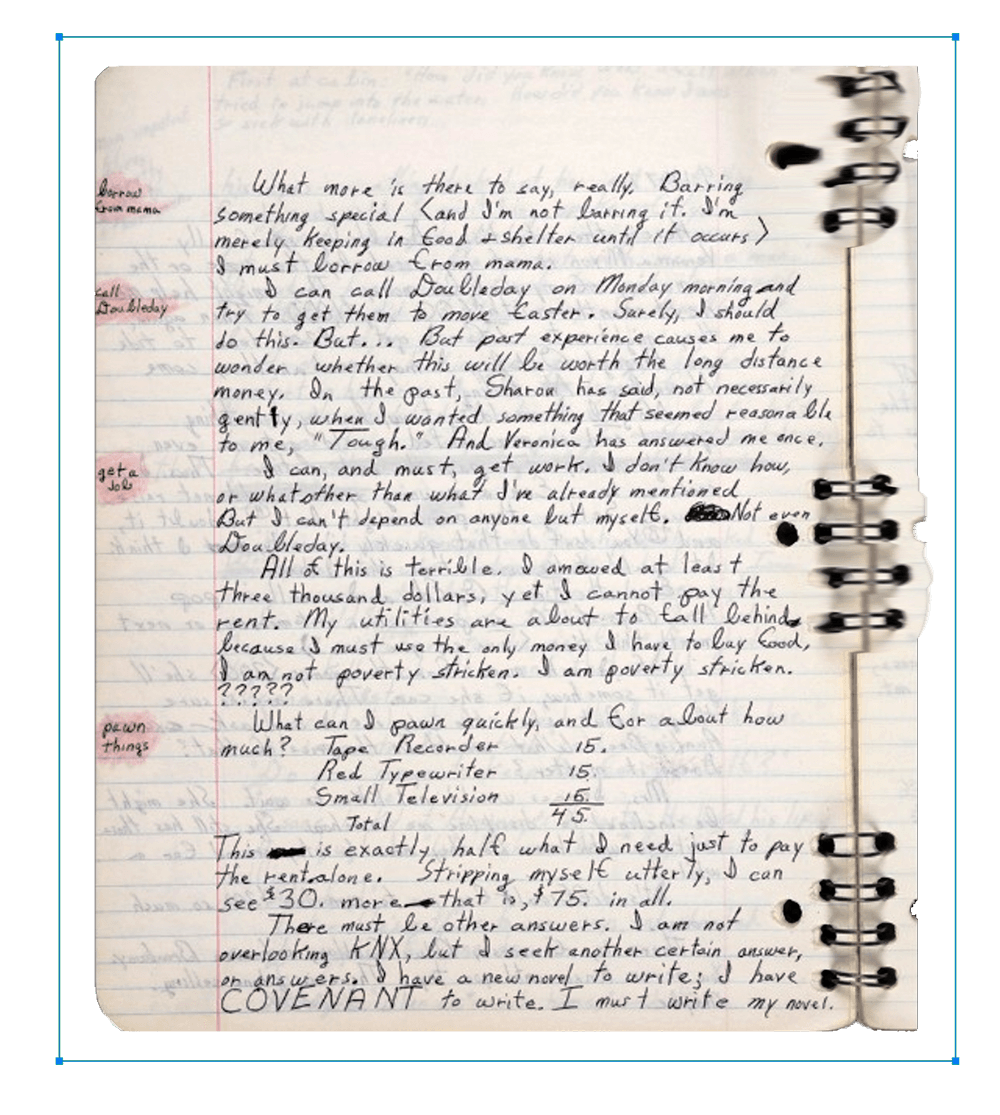 What more is there to say, really. Barring
borrow
from mama
something special (and I'm not barring it. I'm
merely keeping in food + shelter until it occurs)
I must borrow from mama.
call
Doubleday
I can call Doubleday on Monday morning and
try to get them to move faster. Surely, I should
do this. But... But past experience causes me to
wonder whether this will be worth the long distance
money. In the past, Sharon has said, not necessarily
gently, when I wanted something that seemed reasonable
to me, "Tough." And Veronica has answered me once.
get a
job
I can, and must, get work. I don't know how,
or what other than what I've already mentioned
But I can't depend on anyone but myself. Not even
Doubleday.
All of this is terrible. I am owed at least
three thousand dollars, yet I cannot pay the
rent. My utilities are about to fall behind
because I must use the only money I have to buy food,
I am not poverty stricken. I am poverty stricken.
?????
pawn
things
What can I pawn quickly, and for about how
much? Tape Recorder 15.
Red Typewriter 15.
Small Television 15.
Total 45.
This is exactly half what I need just to pay
the rent alone. Stripping myself utterly, I can
see $30. more — that is, $75. in all.
There must be other answers. I am not
overlooking KNX, but I seek another certain answer,
or answers. I have a new novel to write; I have
COVENANT to write. I must write my novel.